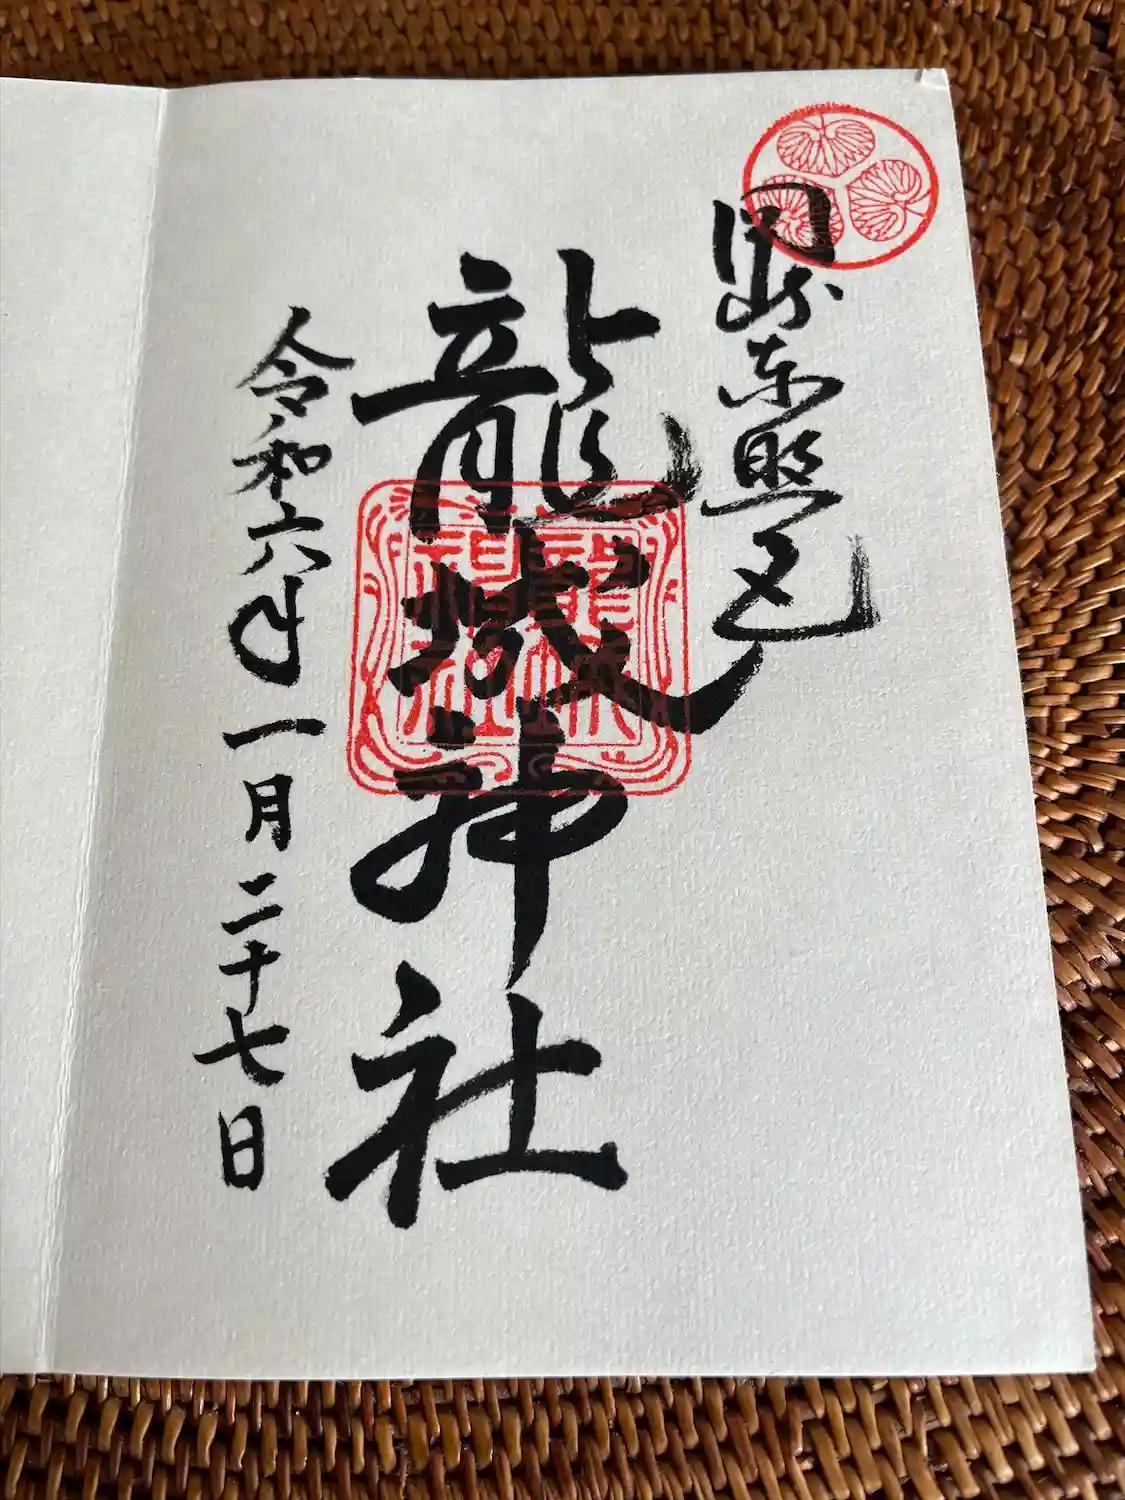 岡崎東照宮
龍城神社
令和六年一月二十七日